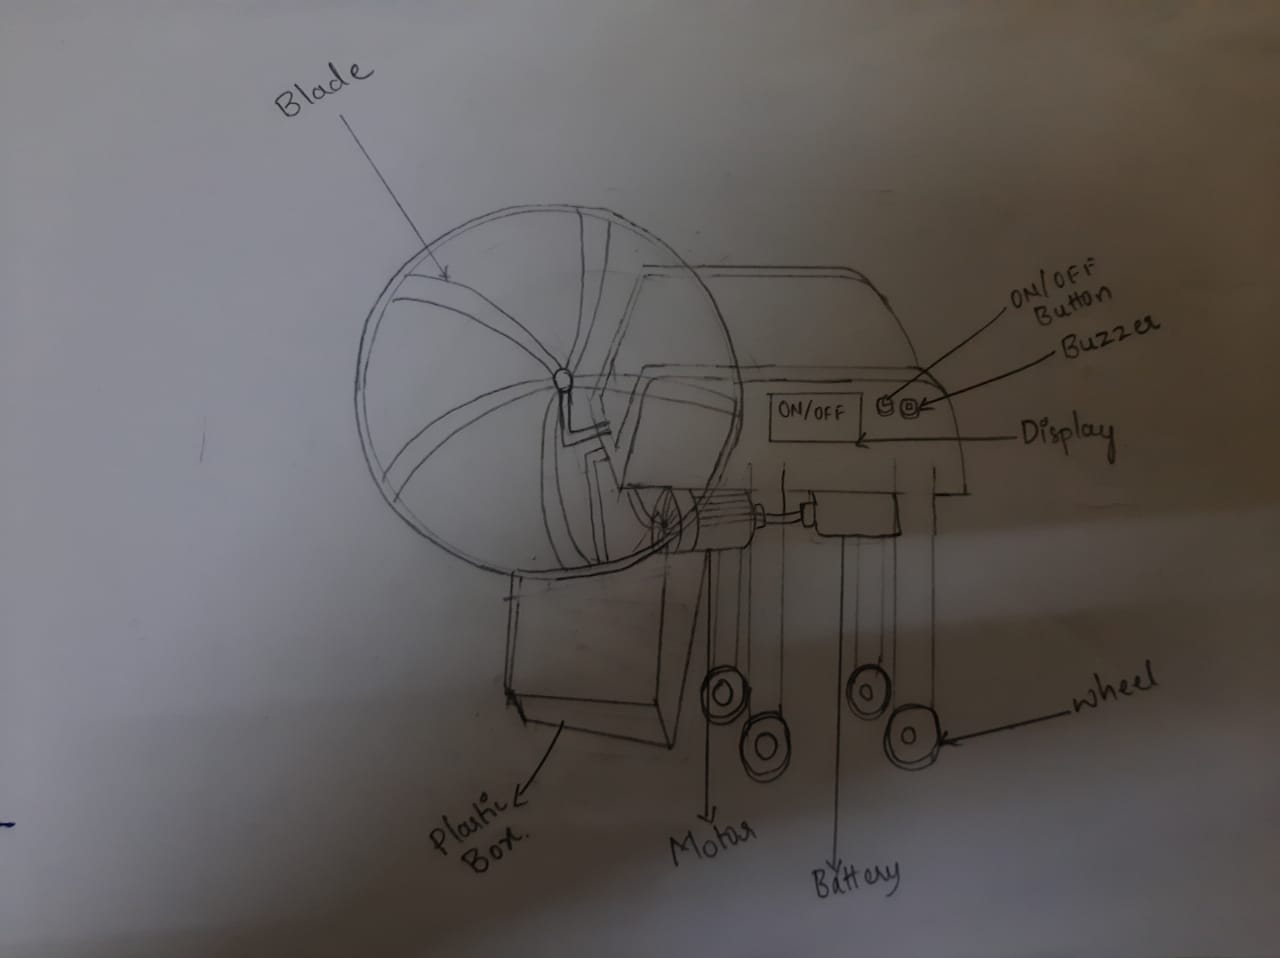 Blade
ON/OFF
Button
Buzzer
ON/OFF
Display
wheel
Plastic
Box.
Motor
Battery